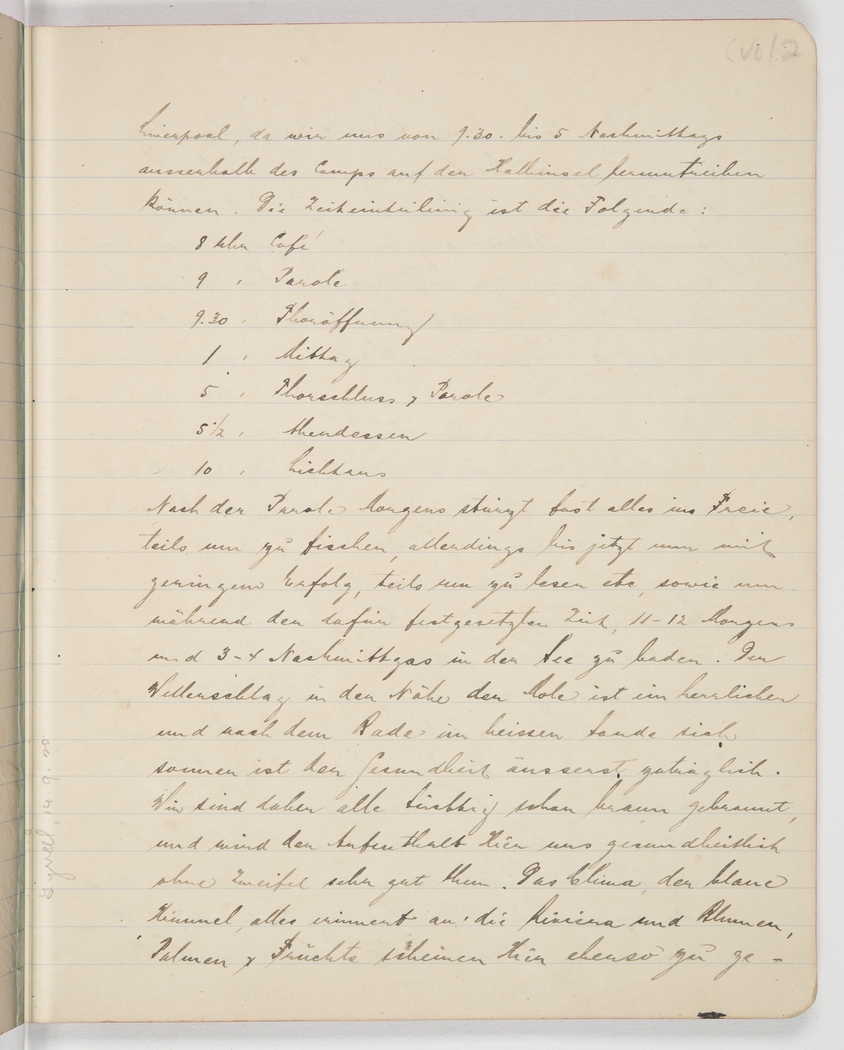 (Vol. 2
Liverpool, da wir uns von 9.30. bis 5 Nachmittags
ausserhalb des Camps auf der Halbinsel herumtreiben
können. Die Zeiteinteilung ist die Folgende:
8 Uhr Café
9 " Parole
9.30 " Thoröffnung
1 " Mittag
5 " Thorschluss & Parole
5 1/2 " Abendessen
10 " Lichtaus
Nach der Parole Morgens stürzt fast alles ins Freie,
teils um zu fischen, allerdings bis jetzt nur mit
geringem Erfolg, teils um zu lesen etc, sowie um
während der dafür festgesetzten Zeit, 11-12 Morgens
und 3-4 Nachmittgas in der See zu baden. Der
Wellenschlag in der Nähe der Mole ist ein herrlicher
und nach dem Bade im heissen Sande sich
sonnen ist der Gesundheit äusserst zuträglich.
Wir sind daher alle tüchtig schon braun gebrannt,
und wird der Aufenthalt Hier uns gesundheitlich
ohne Zweifel sehr gut thun. Das Clima, der blaue
Himmel, alles erinnert an die Riviera und Blumen,
Palmen & Früchte scheinen Hier ebenso zu ge-